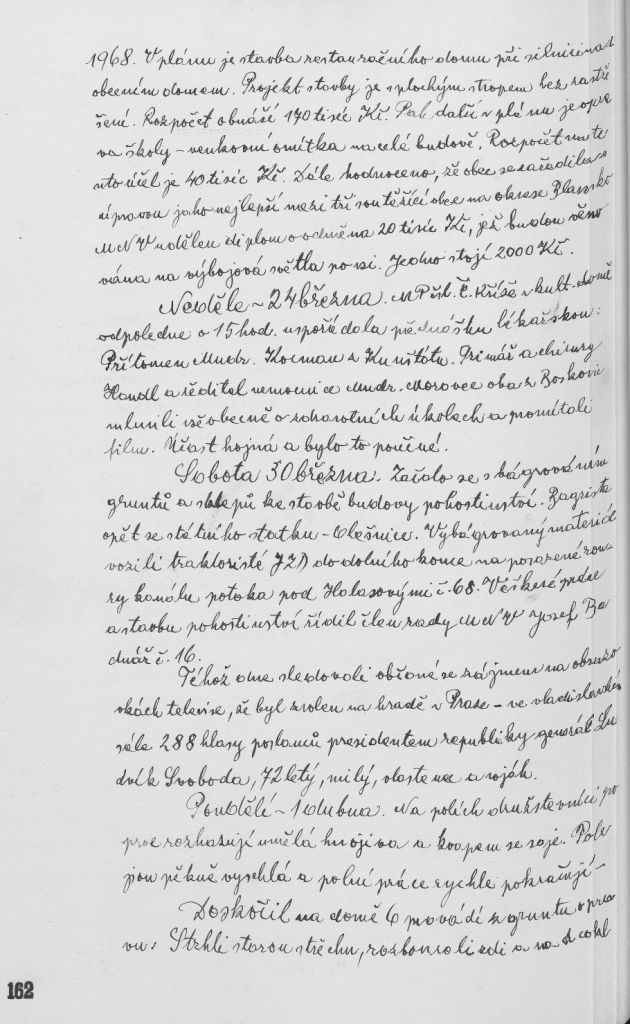 1968. V plánu je stavba restauračního domu při silnici nad
obecním domem. Projekt stavby je s plochým stropem bez zastře
šení. Rozpočet obnáší 170 tisíc Kč. Pak další v plánu je opra
va školy - venkovní omítka na celé budově. Rozpočet na te
nto účel je 40 tisíc Kč. Dále hodnoceno, že obec se zařadila s
úpravou jako nejlepší mezi tři soutěžící obce na okrese Blansko
M N V udělen diplom a odměna 20 tisíc Kč, jež budou věno
vána na výbojová světla po vsi. Jedno stojí 2000 Kč.
Neděle - 24 března. MPSt. Č. Kříže v kult. domě
odpoledne o 15 hod. uspořádala přednášku lékařskou:
Přítomen Mudr. Kocman z Kunštátu. Primář a chirurg
Handl a ředitel nemocnice Mudr. Moravec oba z Boskovic
mluvili všeobecně o zdravotních úkolech a promítali
film. Účast hojná a bylo to poučné.
Sobota 30 března. Začalo se s bágrováním
gruntů a sklepů ke stavbě budovy pohostinství. Bagrista
opět se státního statku - Olešnice. Vybágrovaný materiál
vozili traktoristé JZD do dolního konce na posazené rou-
ry kanálu potoka pod Halasovými č. 68. Veškeré práce
a stavbu pohostinství řídil člen rady M N V Josef Be
dnář č. 16.
Téhož dne sledovali občané se zájmem na obrazo
vkách televise, že byl zvolen na hradě v Praze - ve vladislavském
sále 288 hlasy poslanců presidentem republiky generál Lu
dvík Svoboda, 72 letý, milý, vlastenec a voják.
Pondělí - 1 dubna. Na polích družstevníci po
prve rozhazují umělá hnojiva a kvapem se seje. Pole
jsou pěkně vyschlá a polní práce rychle pokračují -
Doskočil na domě 6 provádí z gruntu opra
vu: Strhli starou střechu, rozbourali zdi a na
162